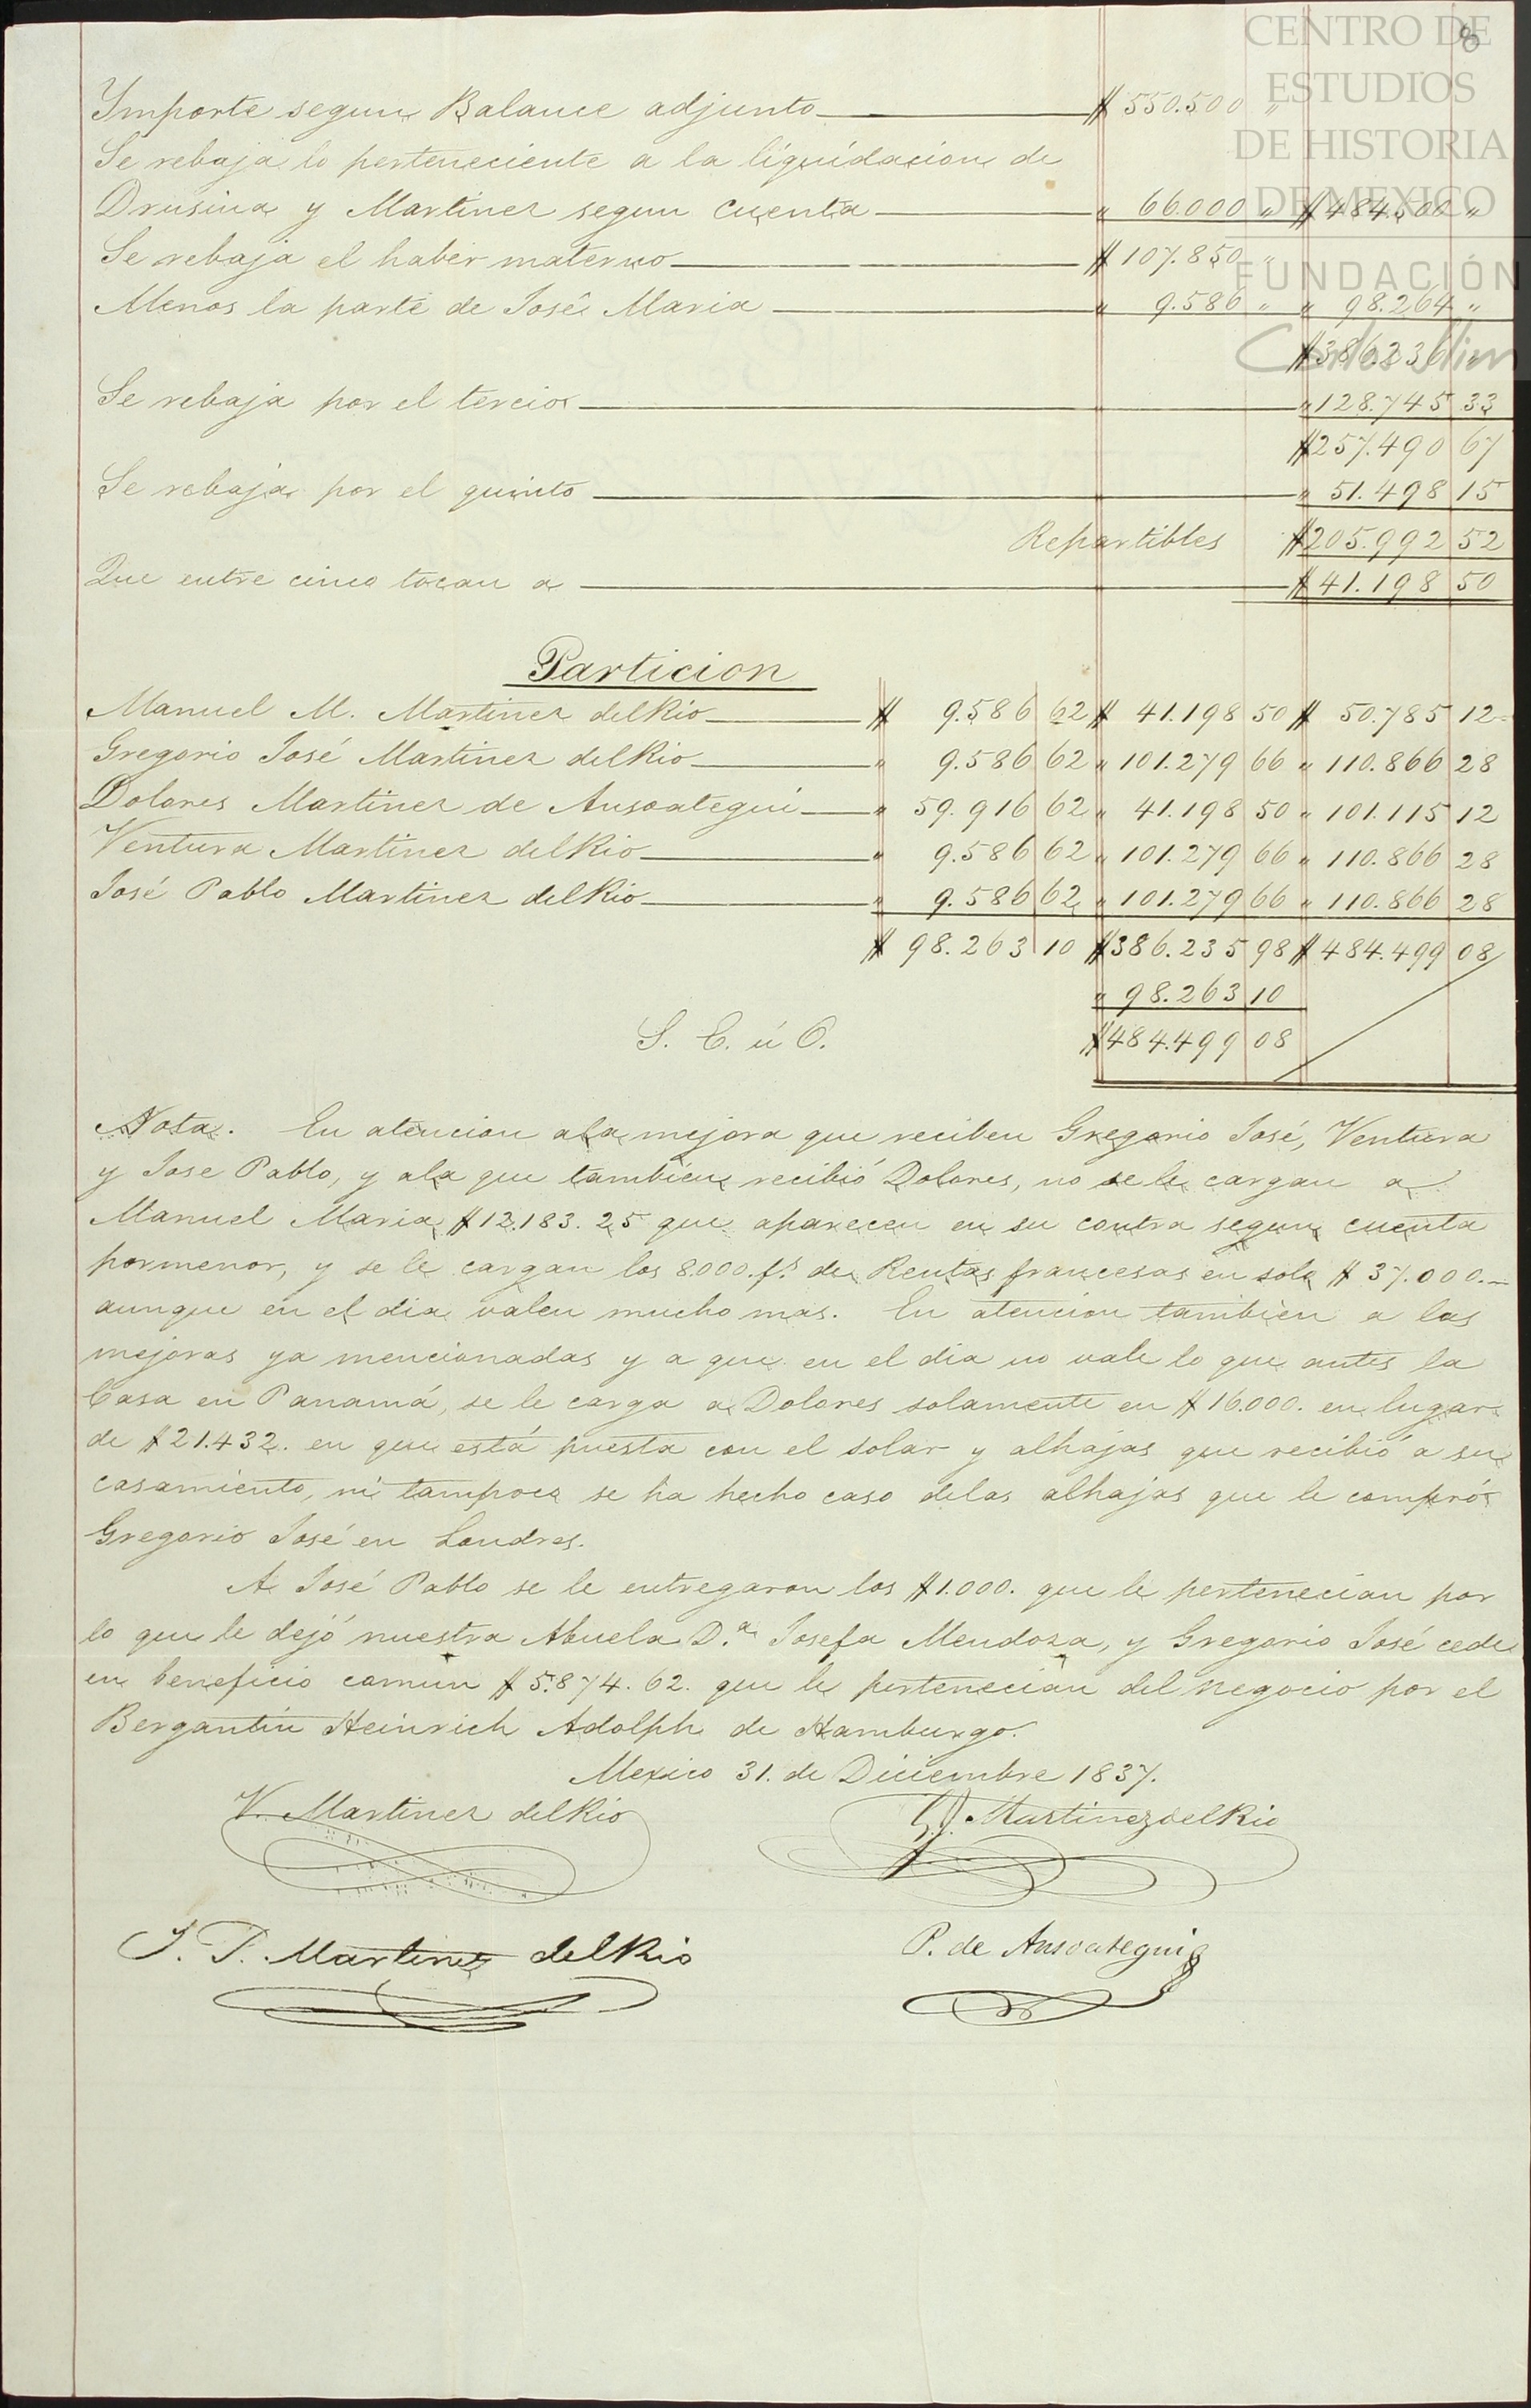 CENTRO DE
ESTUDIOS
DE HISTORIA
DE MEXICO
FUNDACIÓN
Carlos Slim
8
Ymporte segun Balance adjunto $ 550.500 "
Se rebaja lo perteneciente a la liquidacion de
Drusina y Martinez segun cuenta " 66.000 " $ 484.500 "
Se rebaja el haber materno $ 107.850 "
Menos la parte de José Maria " 9.586 " " 98.264 "
$ 386.236 "
Se rebaja por el tercio " 128.745 33
$ 257.490 67
Se rebaja por el quinto " 51.498 15
Repartibles $ 205.992 52
Que entre cinco tocan a $ 41.198 50
Particion
Manuel M. Martinez delRio $ 9.586 62 $ 41.198 50 $ 50.785 12
Gregorio José Martinez delRio " 9.586 62 " 101.279 66 " 110.866 28
Dolores Martinez de Ansoategui " 59.916 62 " 41.198 50 " 101.115 12
Ventura Martinez delRio " 9.586 62 " 101.279 66 " 110.866 28
José Pablo Martinez delRio " 9.586 62 " 101.279 66 " 110.866 28
$ 98.263 10 $ 386.235 98 $ 484.499 08
" 98.263 10
S. E. ú O. $ 484.499 08
Nota. En atencion ala mejora que reciben Gregorio José, Ventura
y Jose Pablo, y ala que tambien recibió Dolores, no se le cargan a
Manuel Maria $ 12.183. 25 que aparecen en su contra segun cuenta
pormenor, y se le cargan los 8.000. f.s de Rentas francesas en solo $ 37.000.—
aunque en el dia valen mucho mas. En atencion tambien a las
mejoras ya mencionadas y a que en el dia no vale lo que antes la
Casa en Panamá, se le carga a Dolores solamente en $ 16.000. en lugar
de $ 21.432. en que está puesta con el solar y alhajas que recibió a su
casamiento, ni tampoco se ha hecho caso delas alhajas que le compró
Gregorio José en Londres.
A José Pablo se le entregaron los $ 1.000. que le pertenecian por
lo que le dejó nuestra Abuela D.a Josefa Mendoza, y Gregorio José cede
en beneficio comun $ 5.874. 62. que le pertenecian del negocio por el
Bergantin Heinrich Adolph de Hamburgo.
Mexico 31. de Diciembre 1837.
V. Martinez delRio G.J. MartinezdelRio
J. P. Martinez delRio P. de Ansoategui